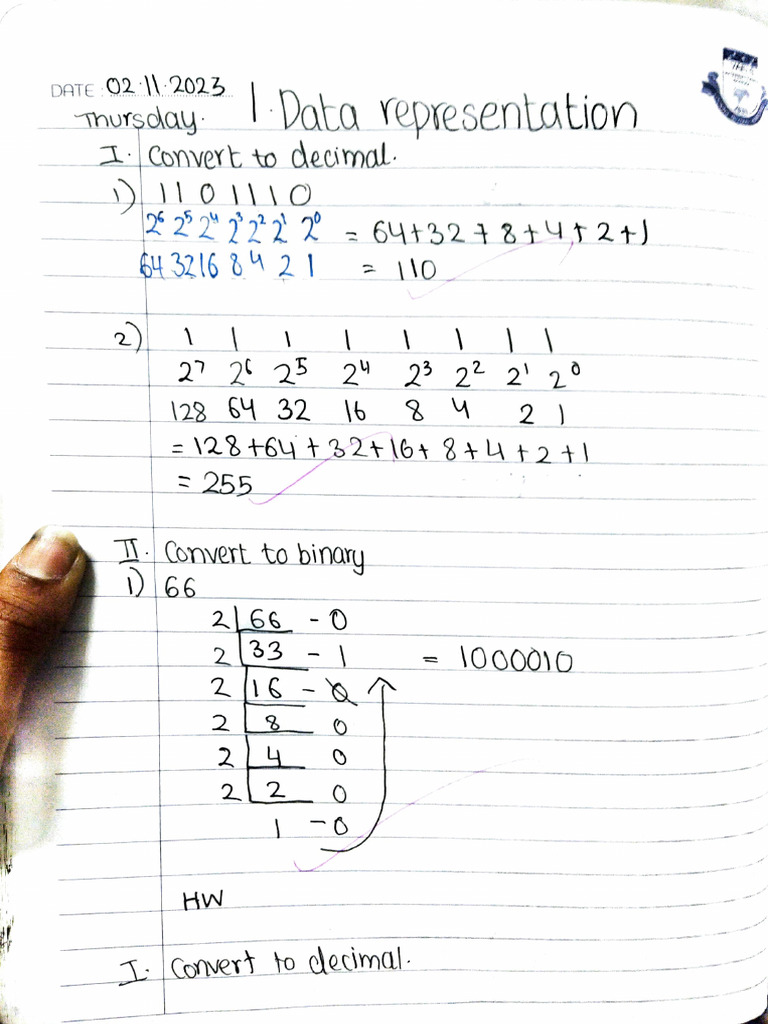 DATE: 02.11.2023
Thursday.
1. Data representation
I. Convert to decimal.
1) 1 1 0 1 1 1 0
2⁶ 2⁵ 2⁴ 2³ 2² 2¹ 2⁰ = 64+32+8+4+2+1
64 32 16 8 4 2 1 = 110
2) 1 1 1 1 1 1 1 1
2⁷ 2⁶ 2⁵ 2⁴ 2³ 2² 2¹ 2⁰
128 64 32 16 8 4 2 1
= 128+64+32+16+8+4+2+1
= 255
II. Convert to binary
1) 66
2 66 - 0
2 33 - 1 = 1000010
2 16 - 0
2 8 0
2 4 0
2 2 0
1 - 0
HW
I. Convert to decimal.